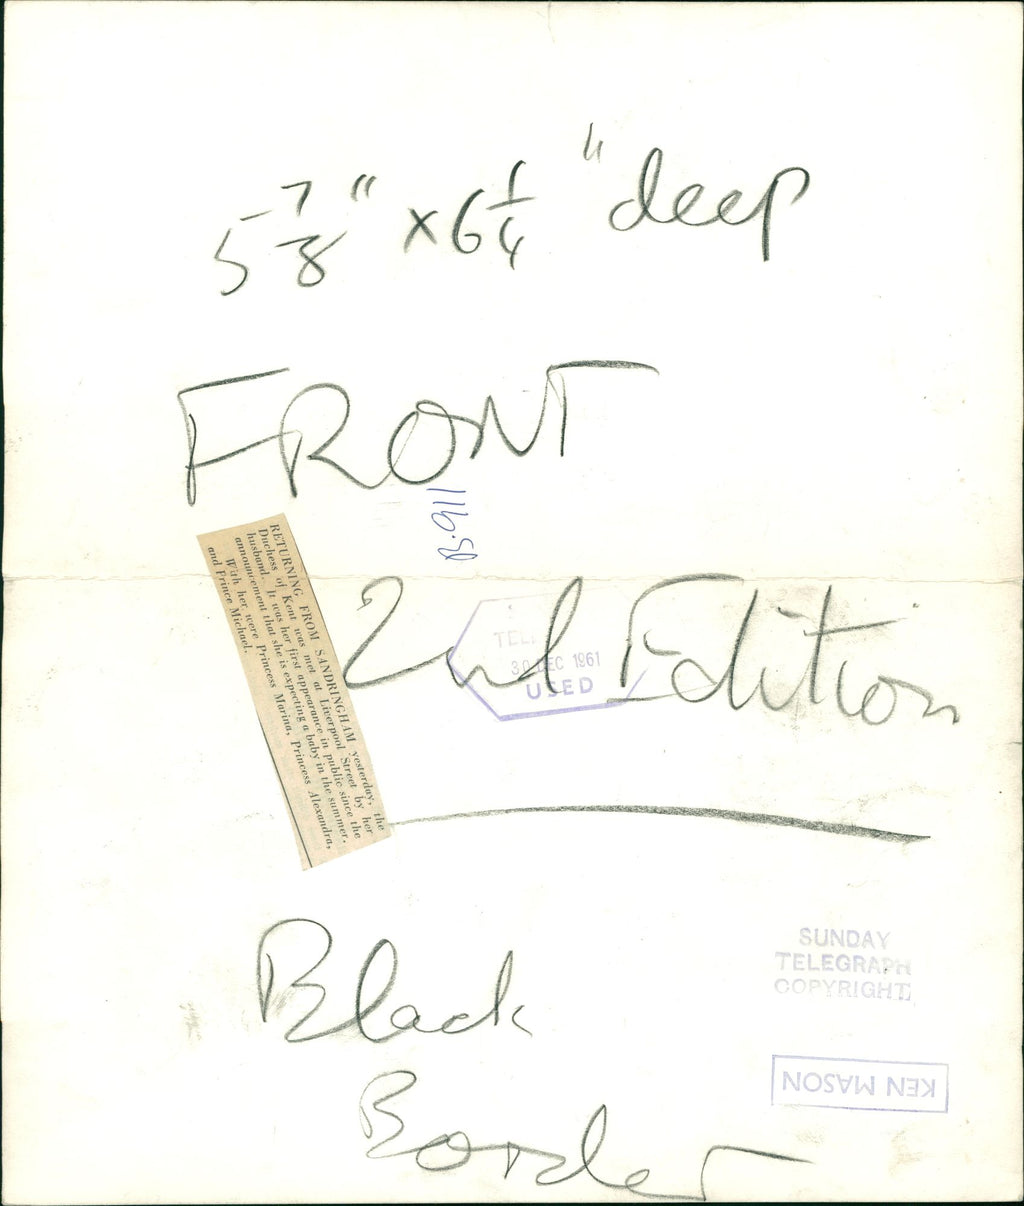 5 7/8" x 6 1/4" deep
FRONT
B.911
RETURNING FROM SANDRINGHAM yesterday, the
Duchess of Kent was met at Liverpool Street by her
husband. It was her first appearance in public since the
announcement that she is expecting a baby in the summer.
With her were Princess Marina, Princess Alexandra,
and Prince Michael.
2nd Edition
30 DEC 1961
USED
Black
Border
SUNDAY
TELEGRAPH
COPYRIGHT
KEN MASON